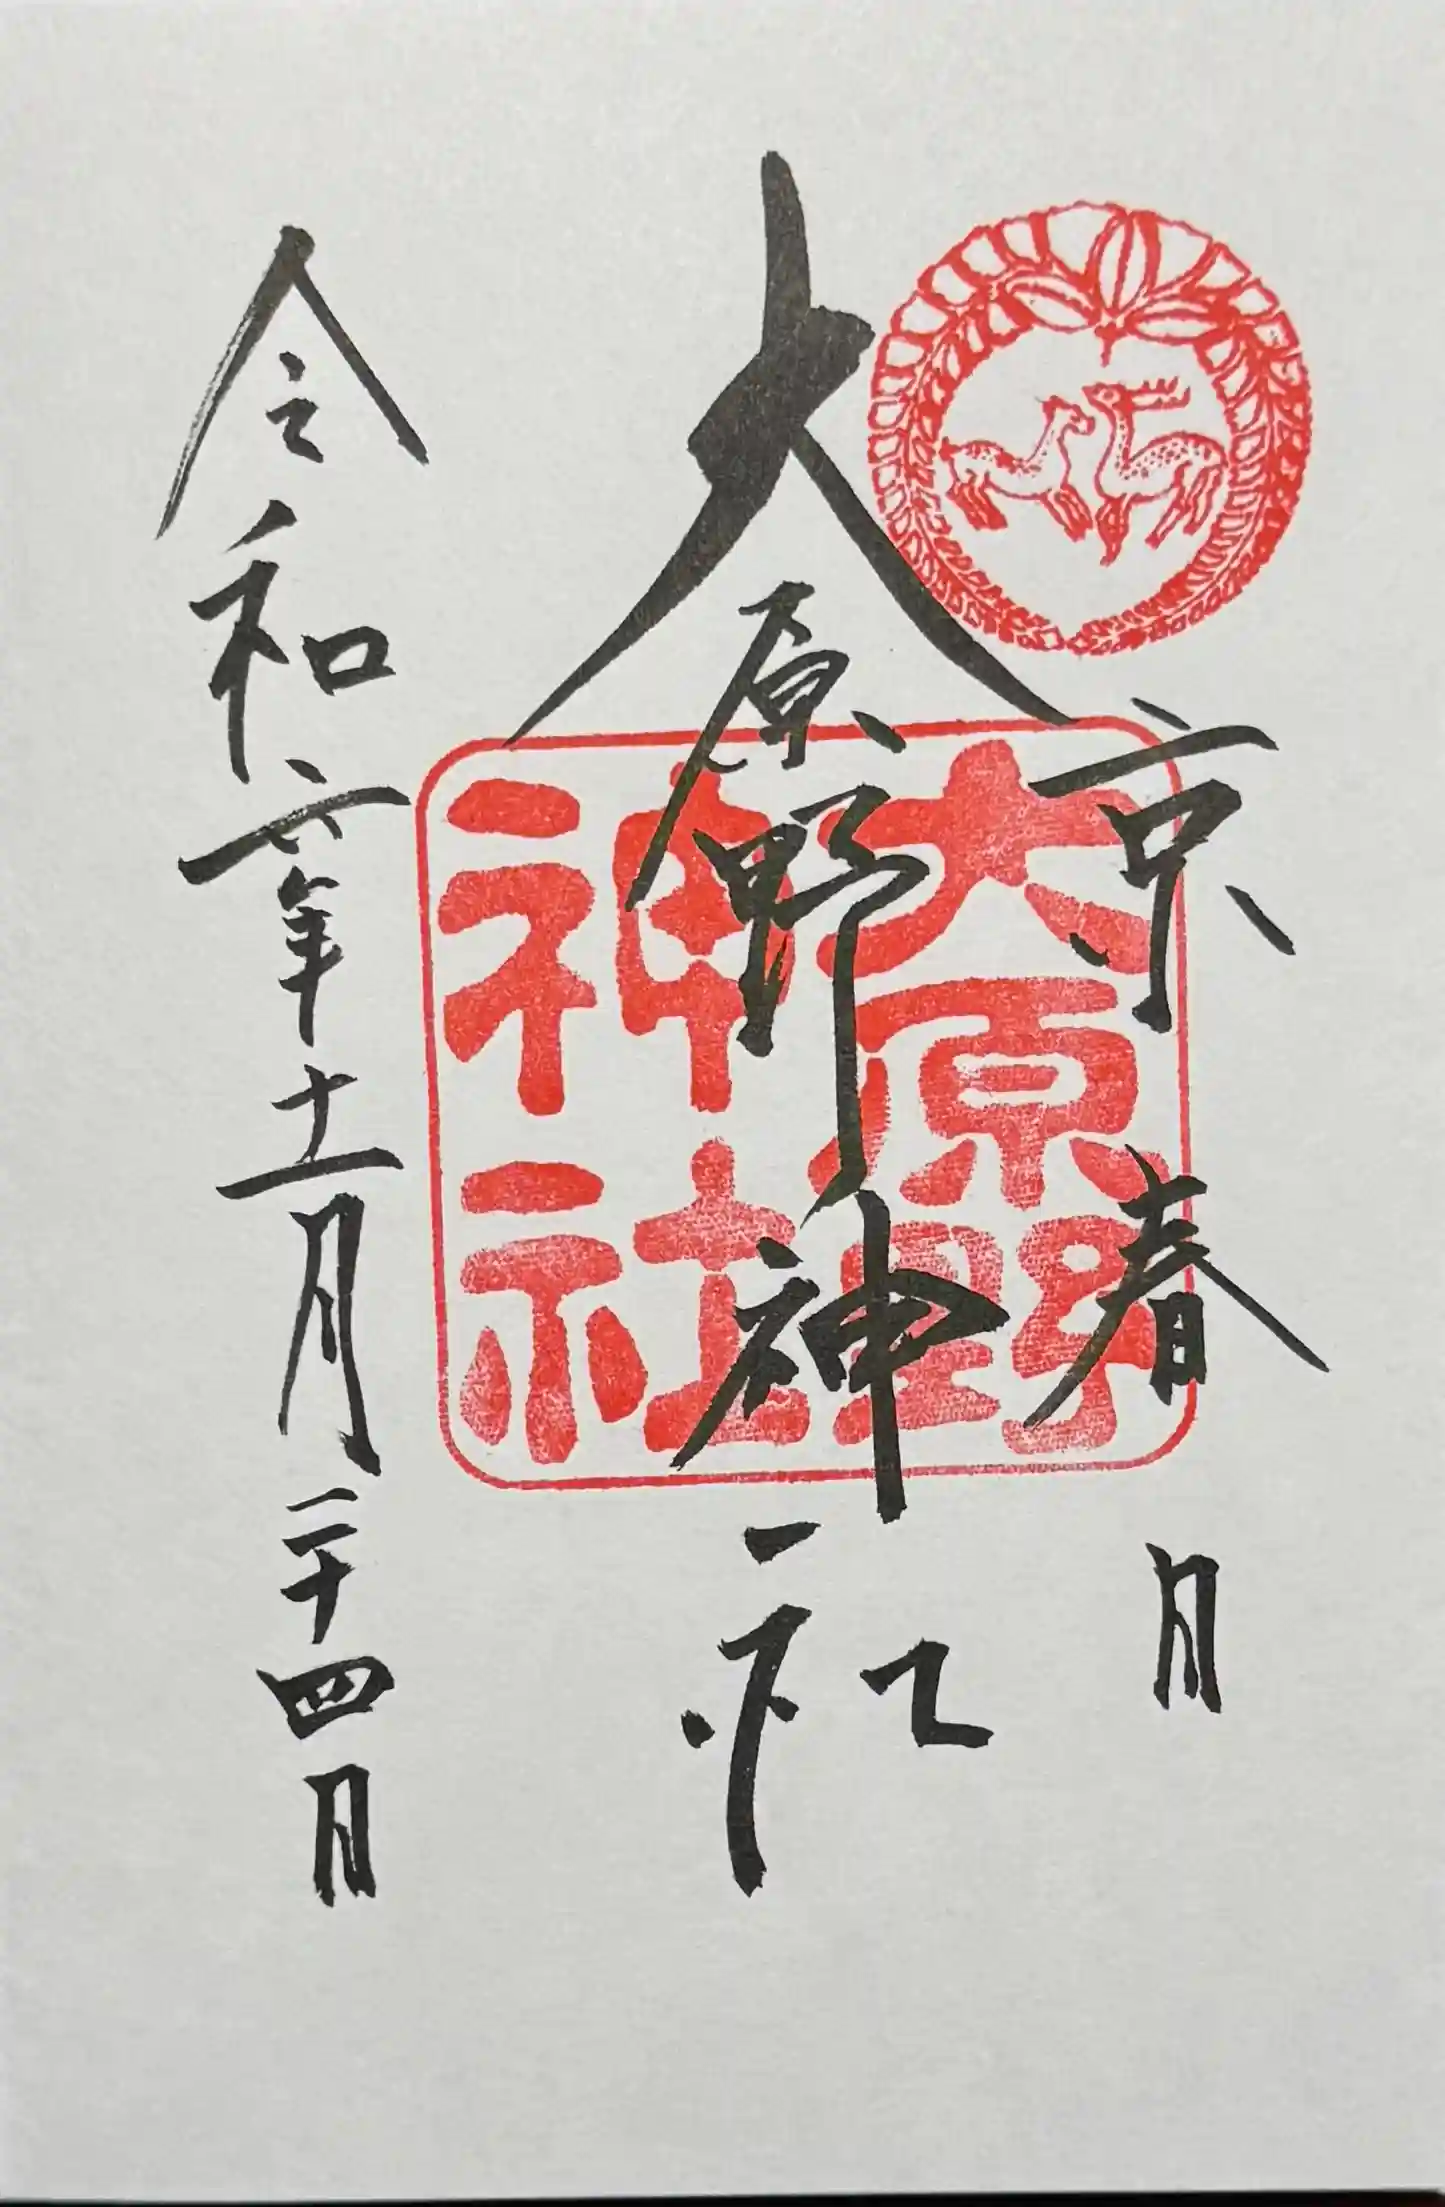 京春日
大原野神社
大原野
神社
令和六年十一月二十四日